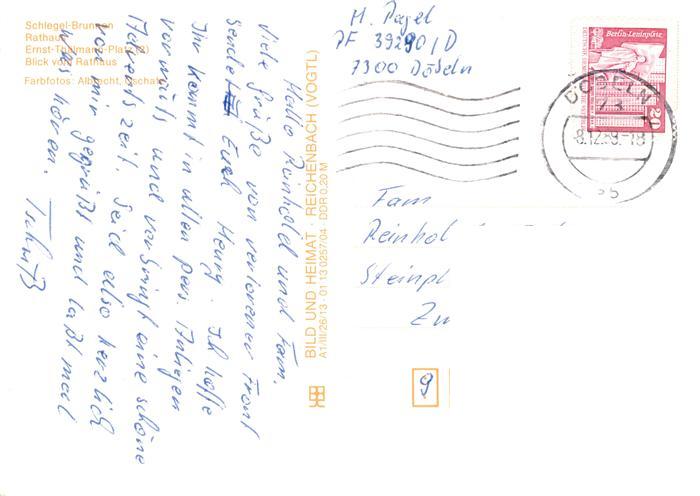 Schlegel-Brunnen
Rathaus
Ernst-Thälmann-Platz (2)
Blick vom Rathaus
Farbfotos: Albrecht, Zschatz
Hallo Reinhold und Fam.
Viele Grüße von verlorener Front
sendet Euch Henry. Ich hoffe
Ihr kommt in allen pers. Anliegen
vorwärts und verbringt eine schöne
Adventszeit. Seid also herzlich
von mir gegrüßt und laßt mal
was hören. Tschüß
BILD UND HEIMAT · REICHENBACH (VOGTL)
A1/III/26/13 · 01 13 0257/04 · DDR 0,20 M
H. Pagel
PF 39290/D
7300 Döbeln
Berlin-Leninplatz
20
DÖBELN
73
8.12.89.-18
Fam
Reinhol
Steinpl
Zw
9